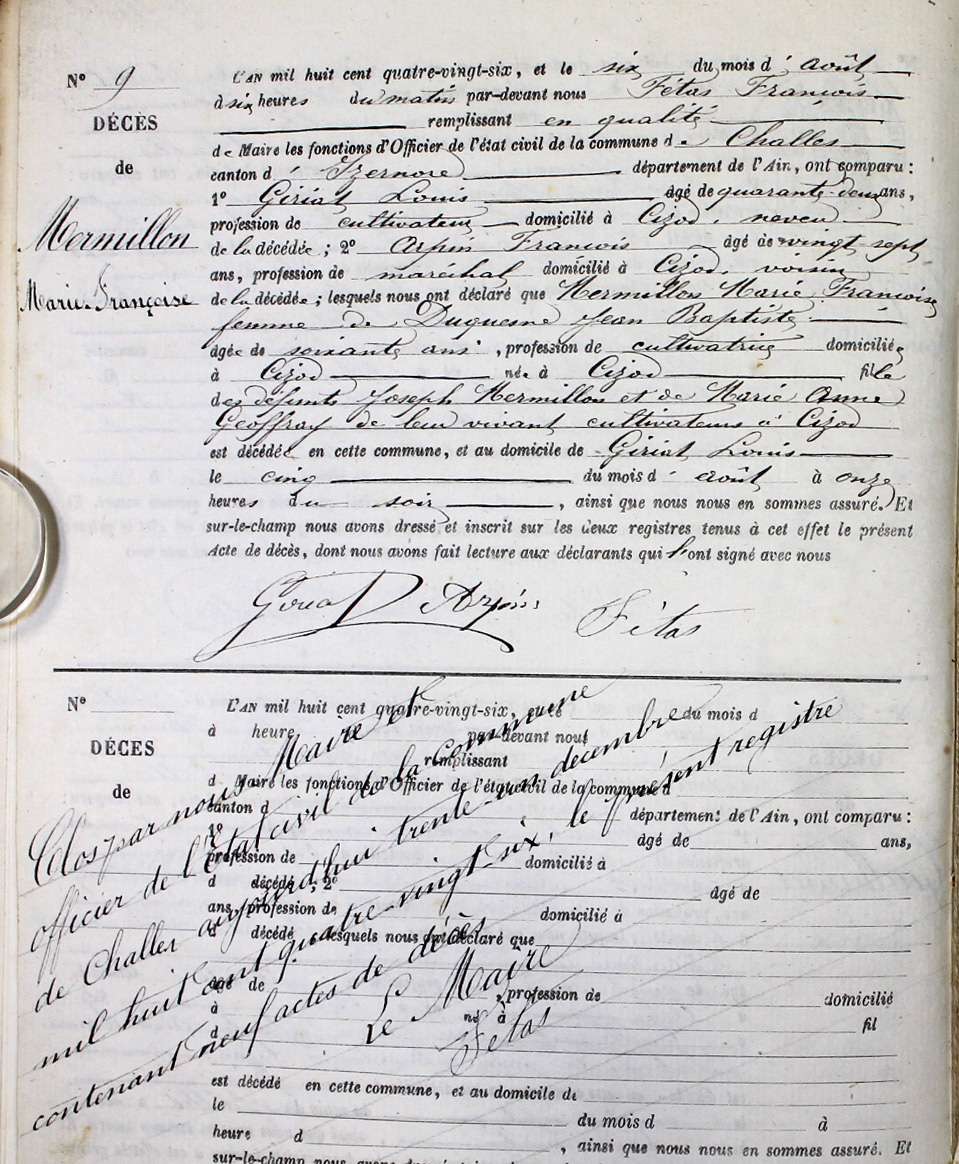 N° 9
DÉCÈS
de
Mermillon
Marie-Françoise
L'AN mil huit cent quatre-vingt-six, et le six du mois d'août
à six heures du matin par-devant nous Fétas François
remplissant en qualité
de Maire les fonctions d'Officier de l'état civil de la commune de Challes
canton d'Izernore département de l'Ain, ont comparu :
1° Giriat Louis âgé de quarante-deux ans,
profession de cultivateur domicilié à Cizod, neveu
de la décédée ; 2° Arpin François âgé de vingt sept
ans, profession de maréchal domicilié à Cizod, voisin
de la décédée ; lesquels nous ont déclaré que Mermillon Marie Françoise
femme de Duquesne Jean Baptiste
âgée de soixante ans, profession de cultivatrice domiciliée
à Cizod née à Cizod fille
des défunts Joseph Mermillon et de Marie Anne
Geoffray de leur vivant cultivateurs à Cizod
est décédée en cette commune, et au domicile de Giriat Louis
le cinq du mois d'août à onze
heures du soir, ainsi que nous nous en sommes assuré. Et
sur-le-champ nous avons dressé et inscrit sur les deux registres tenus à cet effet le présent
Acte de décès, dont nous avons fait lecture aux déclarants qui l'ont signé avec nous
Arpin Fétas
N°
DÉCÈS
de
L'AN mil huit cent quatre-vingt-six, et le du mois d
à heure par-devant nous
remplissant
d Maire les fonctions d'Officier de l'état civil de la commune d
canton d département de l'Ain, ont comparu :
1° âgé de ans,
profession de domicilié à
d décédé ; 2° âgé de
ans, profession de domicilié à
d décédé lesquels nous ont déclaré que
âgé de , profession de domicilié
à né à fil
d
est décédé en cette commune, et au domicile de
le du mois d à
heure d , ainsi que nous nous en sommes assuré. Et
sur-le-champ nous avons dressé et inscrit
Clos par nous Maire et
officier de l'Etat civil de la commune
de Challes aujourd'hui trente-un décembre
mil huit cent quatre-vingt-six, le présent registre
contenant neuf actes de décès
Le Maire
Fétas